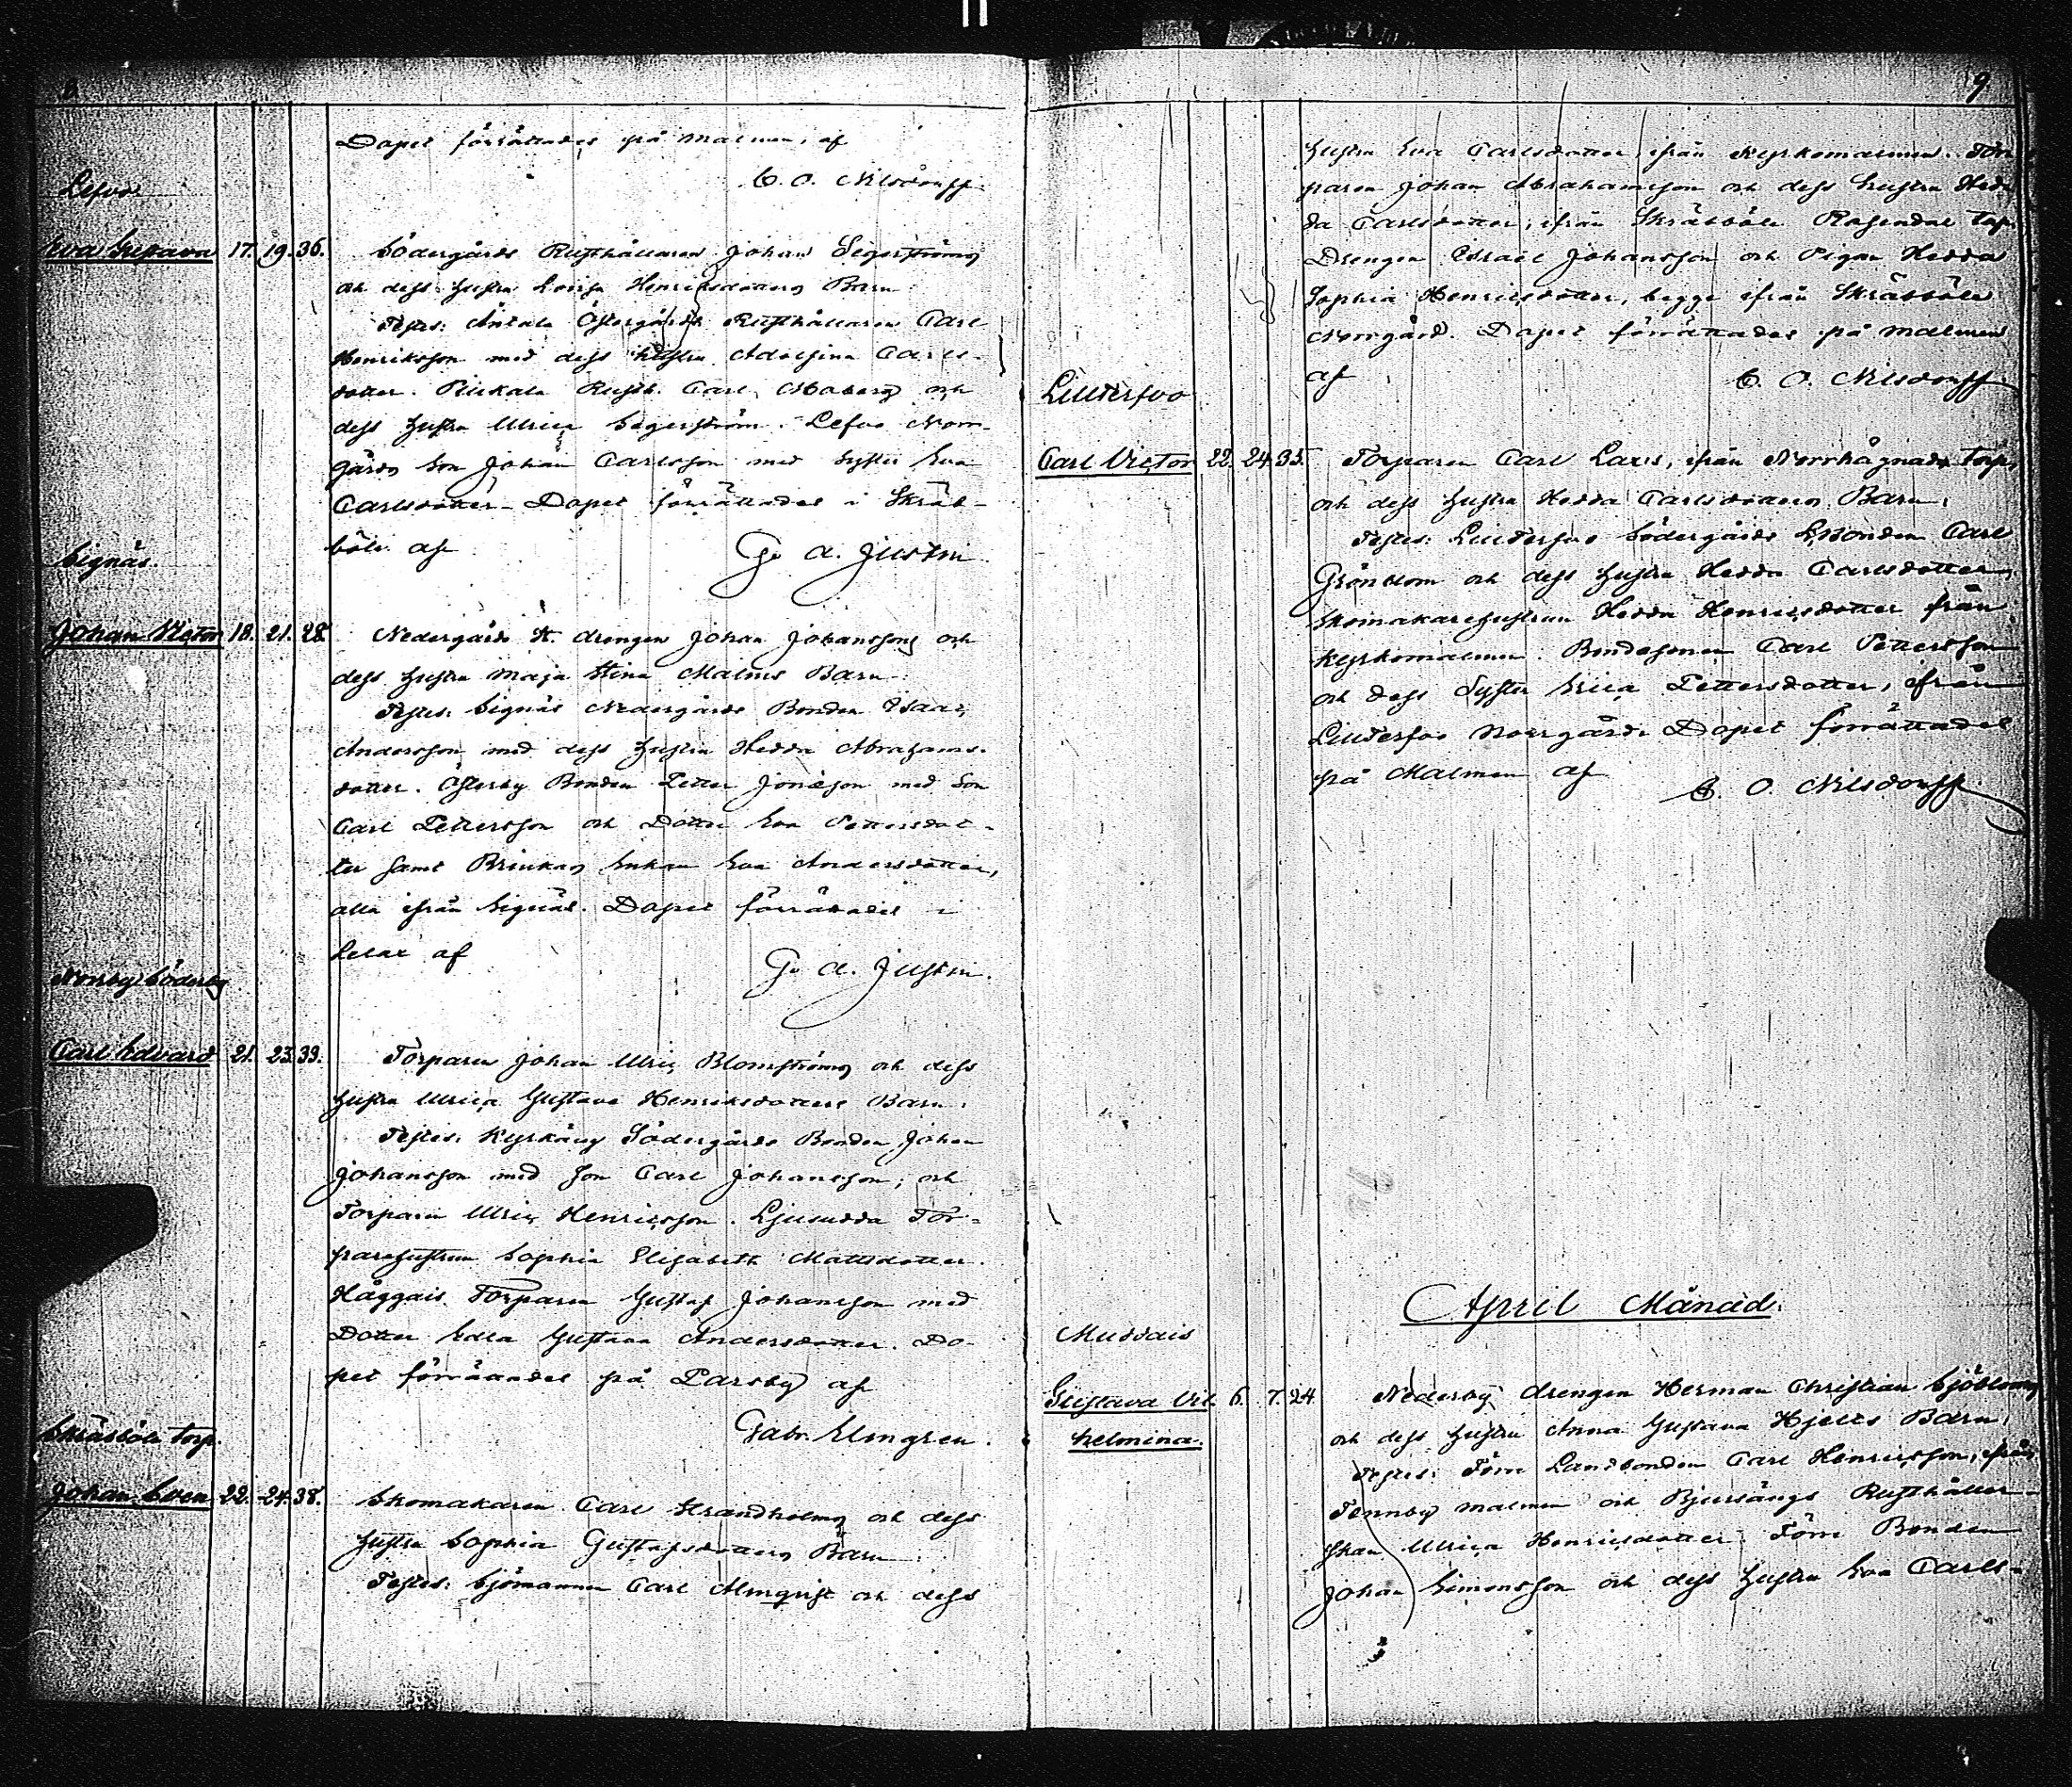 8
Dopet förrättades på malmen, af
C. O. Nilsdorff
Lefvo
Eva Gustava 17. 19. 36. Södergårds Rusthållaren Johan Segerströms
och dess hustru Lovisa Henriksdotters Barn
Testes: Antala Östergårds Rusthållaren Carl
Henriksson med dess hustru Adolfina Carls-
dotter. Rust. Carl Moberg och
dess hustru Ulrica Segerström. Lefvo Norr-
gårds Son Johan Carlsson med Syster Eva
Carlsdotter. Dopet förrättades i Skräb-
böle af G. A. Justin
Signäs
Johan Victor 18. 21. 28. Nedergårds St. drengen Johan Johanssons och
dess hustru Maja Stina Malms Barn.
Testes: Signäs Nedergårds Bonden Isaac
Andersson med dess hustru Hedda Abrahams-
dotter. Österby Bonden Petter Jonasson med Son
Carl Pettersson och Dotter Eva Pettersdot-
ter samt Brinkas Enkan Eva Andersdotter,
alla ifrån Signäs. Dopet förrättades i
Lelax af G. A. Justin.
Norrby Söderby
Carl Edvard 21. 23. 39. Torparen Johan Ulric Blomströms och dess
hustru Ulrica Gustava Henriksdotters Barn.
Testes: Kyrkäng Södergårds Bonden Johan
Johansson med Son Carl Johansson, och
Torparen Ulric Henricsson. Ljusudda Tor-
parehustrun Sophia Elisabeth Mattsdotter.
Häggais Torparen Gustaf Johansson med
Dotter Edla Gustava Andersdotter. Do-
pet förrättades på Parsby af
Gabr. Elmgren.
Skräbböle torp.
Johan Sven 22. 24. 38. Skomakaren Carl Strandholms och dess
hustru Sophia Gustafsdotters Barn
Testes: Sjömannen Carl Almqvist och dess
9
hustru Eva Carlsdotter, ifrån Kyrkomalmen. Tor-
paren Johan Abrahamsson och dess hustru Hed-
da Carlsdotter, ifrån Skräbböle Rosendal torp.
Drengen Israel Johansson och Pigan Hedda
Sophia Henricsdotter, begge ifrån Skräbböle
Norrgård. Dopet förrättades på malmen
af C. O. Nilsdorff
Lilltersvo
Carl Victor 22. 24. 35. Torparen Carl Lars, ifrån Norrhågnads torp,
och dess hustru Hedda Carlsdotters Barn.
Testes: Lilltersvo Södergårds Lbonden Carl
Grönblom och dess hustru Hedda Carlsdotter,
Skomakarehustrun Hedda Henricsdotter från
Kyrkomalmen. Bondesonen Carl Pettersson
och dess Syster Erica Pettersdotter, ifrån
Lilltersvo Norrgård. Dopet förrättades
på Malmen af C. O. Nilsdorff
April Månad.
Muddais
Gustava Vil- 6. 7. 24. Nederby drengen Herman Christian Sjöbloms
helmina. och dess hustru Anna Gustava Hjelts Barn.
Testes: Landbonden Carl Henricsson, ifrån
Tennby malmen och Bjursängs Rusthåller-
skan Ulrica Henricsdotter. Bonden
Johan Simonsson och dess hustru Eva Carls-